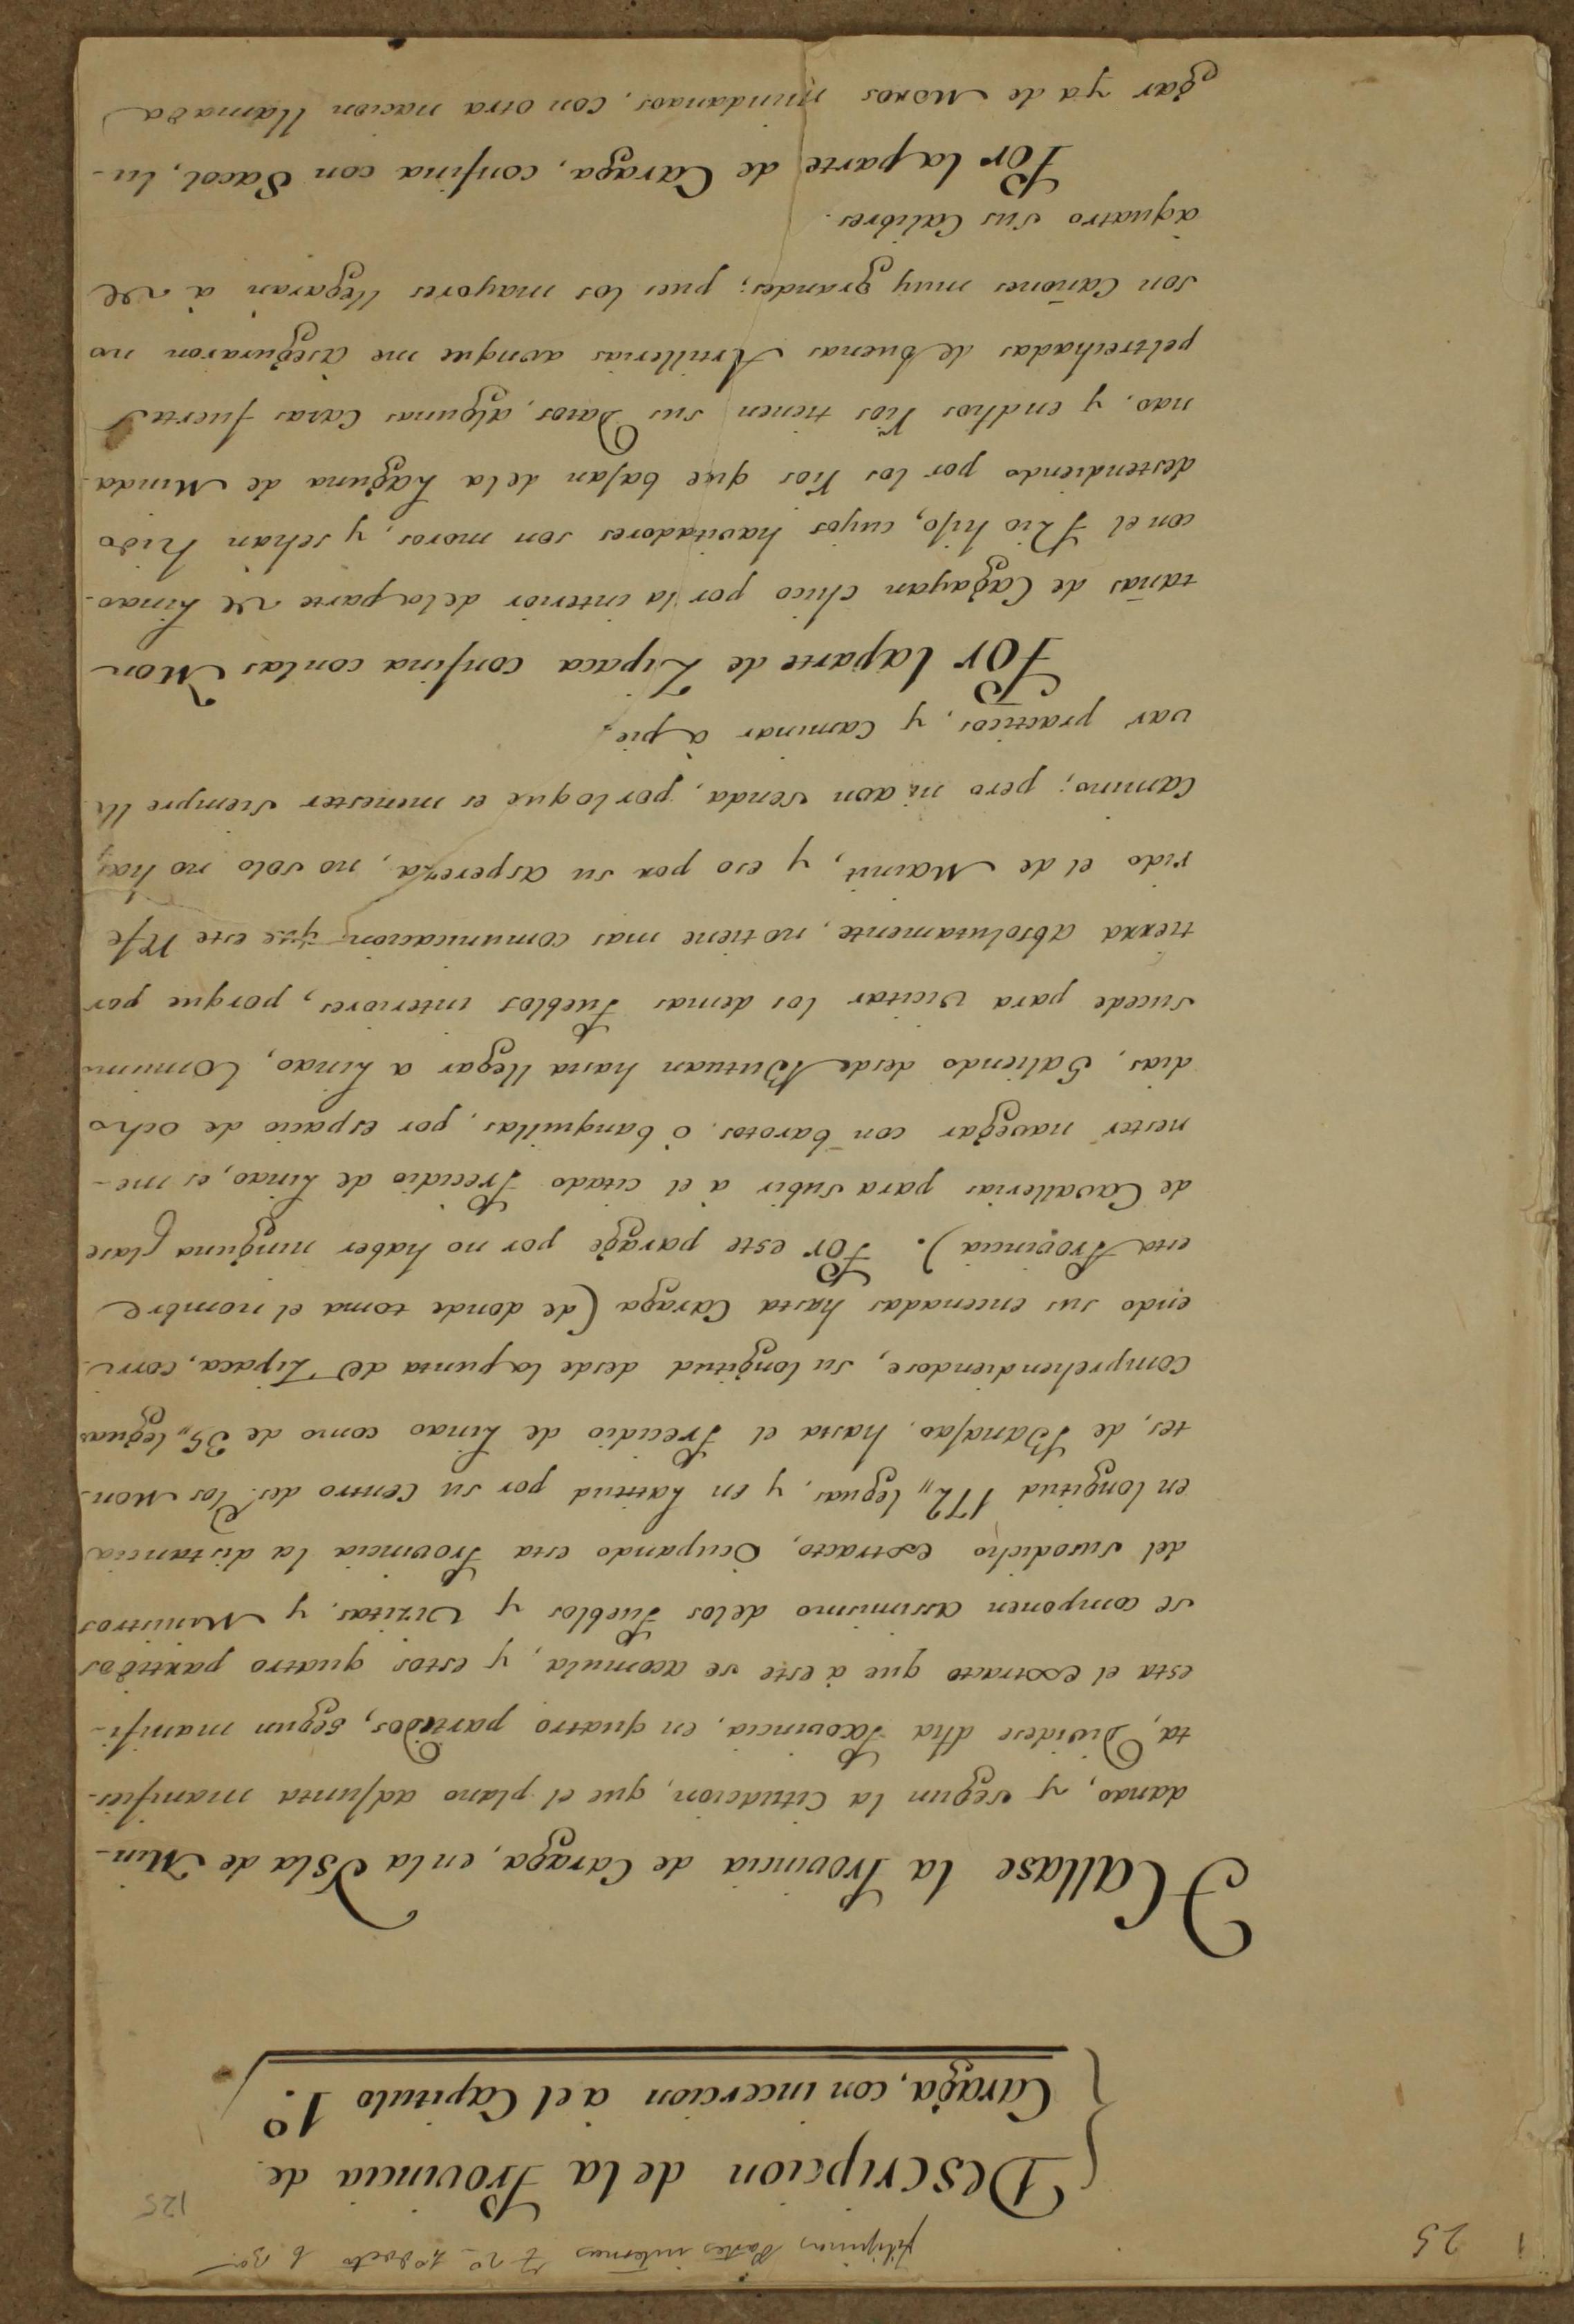 1 25
filipinas Partes internas t 2º 4º
125
Descripcion de la Provincia de
Caraga, con incercion à el Capitulo 1º.
Hallase la Provincia de Caraga, en la Ysla de Min-
danao, y segun la cituacion, que el plano adjunta manifies-
ta, Dividese dha Provincia, en quatro partidos, segun manifi-
esta el extracto que à este se acomula, y estos quatro partidos
se componen assimismo delos Pueblos y Vizitas, y Ministros
del susodicho extracto, Ocupando esta Provincia la distancia
en longitud 172,, leguas, y en Lattitud por su Centro des los Mon-
tes, de Banajao, hasta el Precidio de Linao como de 35,, leguas
comprehendiendose, su longitud desde la punta de Lipaca, corri-
endo sus encenadas hasta Caraga (de donde toma el nombre
esta Provincia). Por este parage por no haber ninguna clase
de Cavallerias para subir à el citado Precidio de Linao, es me-
nester navegar con barotos, ò banquillas, por espacio de ocho
dias, Saliendo desde Butuan hasta llegar a Linao, Lo mismo
sucede para vicitar los demas Pueblos interiores, porque por
tierra absolutamente, no tiene mas comunicacion que este Rfe
rido el de Mainit, y eso por su aspereza, no solo no hay
Camino; pero ni aon senda, por loque es menester siempre lle
var practicos, y Caminar à pie.
Por laparte de Lipaca confina conlas Mon
tañas de Cagayan chico por la interior dela parte de Linao-
con el Rio hijo, cuyos havitadores son moros, y sehan hido
destendiendo por los rios que bajan dela Laguna de Minda
nao, y endhos rios tienen sus Datos, algunas Casas fuertes
peltrechadas de buenas Artillerias aonque me aseguraron no
son Cañones muy grandes; pues los mayores llegaran à de
àquatro sus Calibres.
Por laparte de Caraga, confina con Sacol, lu-
gar ya de Moros mindanaos, con otra nacion llamada